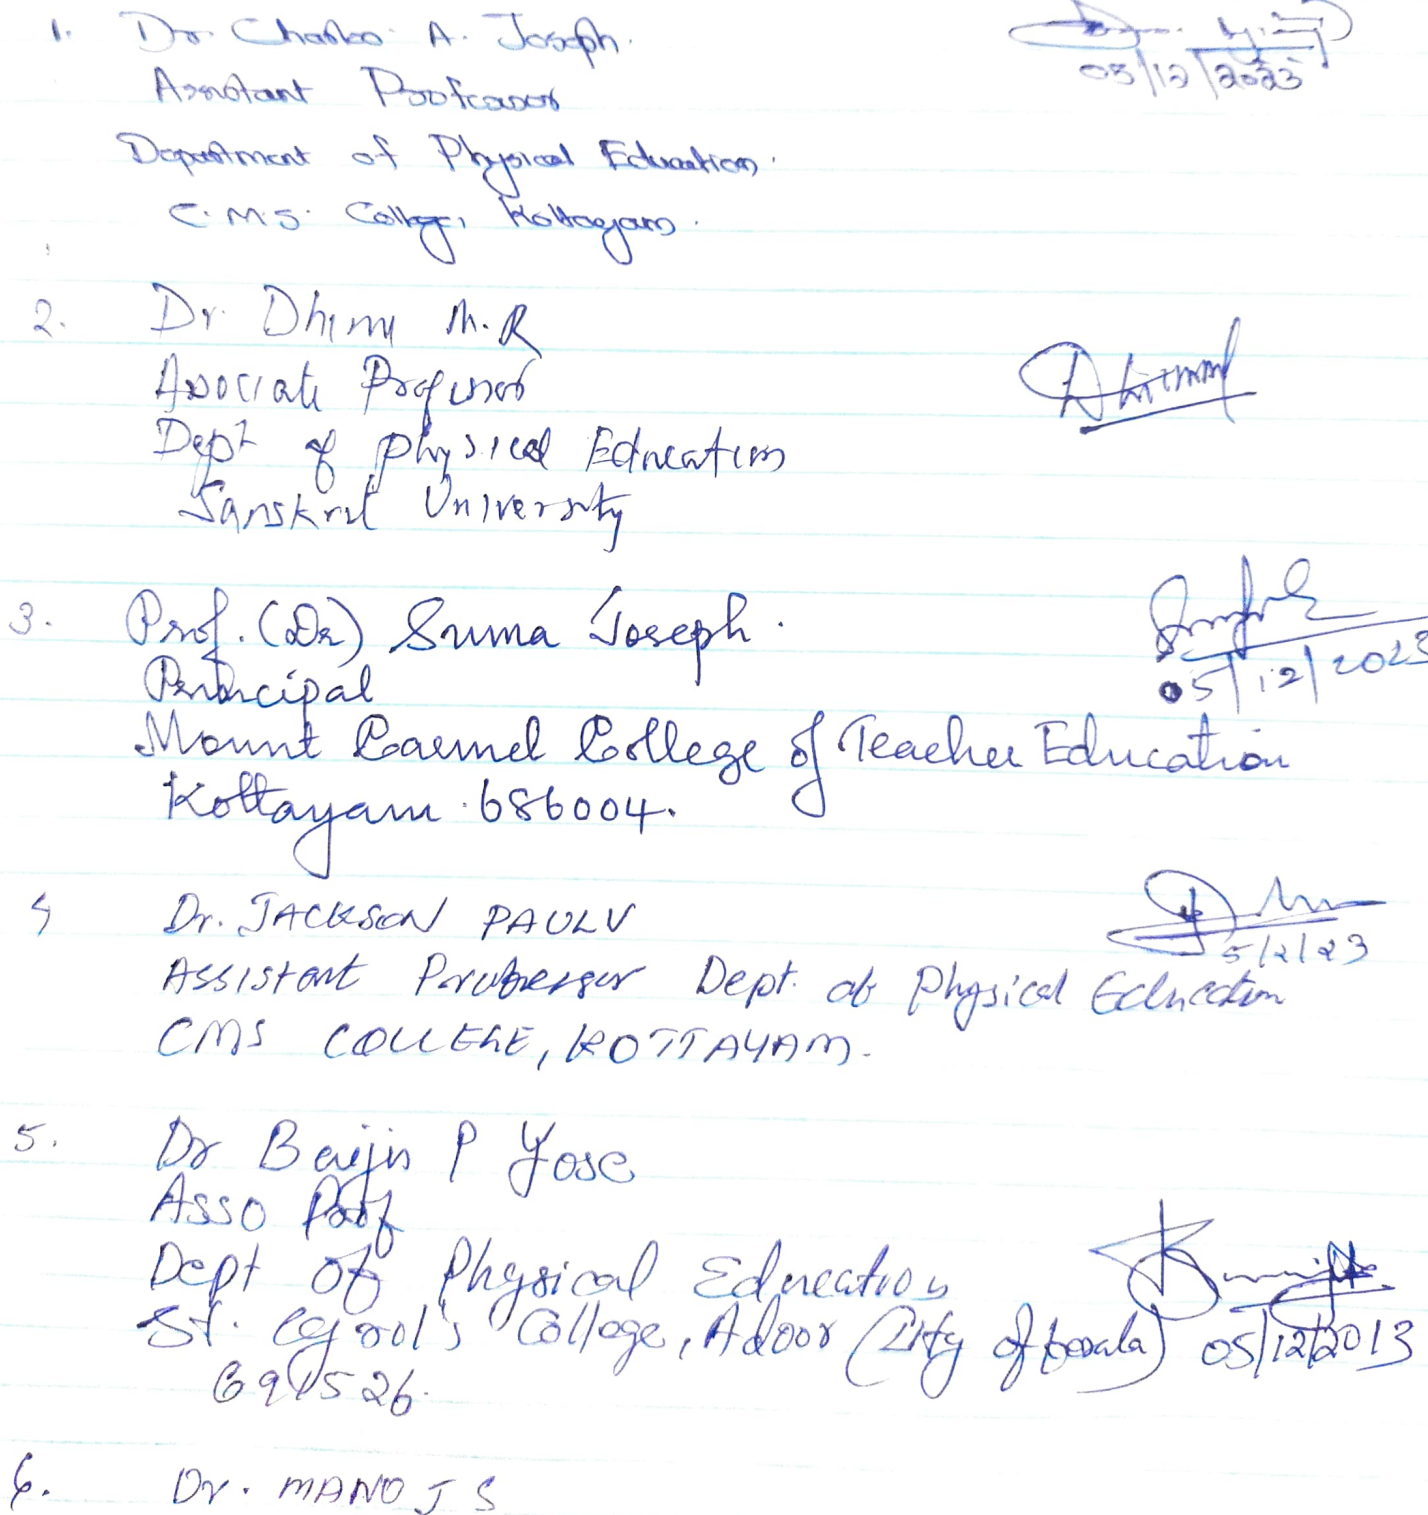 1. Dr. Charles A. Joseph.
05/12/2023
Assistant Professor
Department of Physical Education.
C.M.S. College, Kottayam.
2. Dr. Dhinu M.R
Associate Professor
Dept of physical Education
Sanskrit University
3. Prof. (Dr) Suma Joseph.
Principal
05/12/2023
Mount Carmel College of Teacher Education
Kottayam. 686004.
4 Dr. JACKSON PAUL V
5/12/23
Assistant Professor Dept. of Physical Education
CMS COLLEGE, KOTTAYAM.
5. Dr Baiju P Jose
Asso Prof
Dept of Physical Education
St. Cyril's College, Adoor (Uty of Kerala) 05/12/2013
691526.
6. Dr. MANOJ S